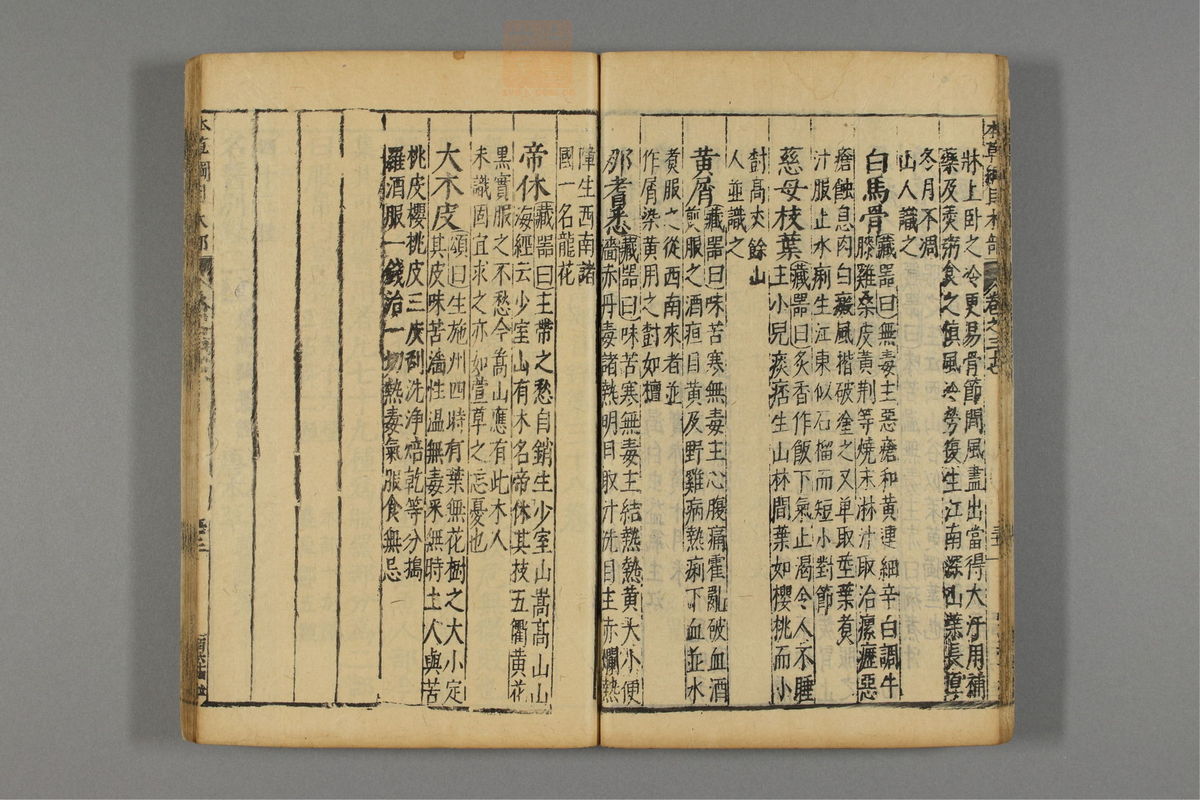 本草綱目木部 卷之三十七
牀上卧之冷更易骨節間風盡出當得大汗用補
藥及羹粥食之慎風冷勞復生江南深山葉長厚
冬月不凋
山人識之
白馬骨 藏器曰無毒主惡瘡和黃連細辛白調牛
膝雞桑皮黃荆等燒末淋汁取治瘰癧惡
瘡蝕息肉白癜風揩破塗之又单取莖葉煮
汁服止水痢生江東似石榴而短小對節
慈母枝葉 藏器曰炙香作飲下氣止渴令人不睡
主小兒痰痞生山林間葉如櫻桃而小
樹高丈餘山
人並識之
黃屑 藏器曰味苦寒無毒主心腹痛霍亂破血酒
煎服之酒疸目黃及野雞病熱痢下血並水
煮服之從西南來者並
作屑染黃用之樹如檀
那耆悉 藏器曰味苦寒無毒主結熱熱黃大小便
濇赤丹毒諸熱明目取汁洗目主赤爛熱
障生西南諸
國一名龍花
帝休 藏器曰主帶之愁自銷生少室山嵩高山山
海經云少室山有木名帝休其枝五衢黃花
黑實服之不愁今嵩山應有此木人
未識固宜求之亦如萱草之忘憂也
大木皮 頌曰生施州四時有葉無花樹之大小定
其皮味苦濇性温無毒采無時土人與苦
桃皮櫻桃皮三皮刮洗淨焙乾等分搗
羅酒服一錢治一切熱毒氣服食無忌